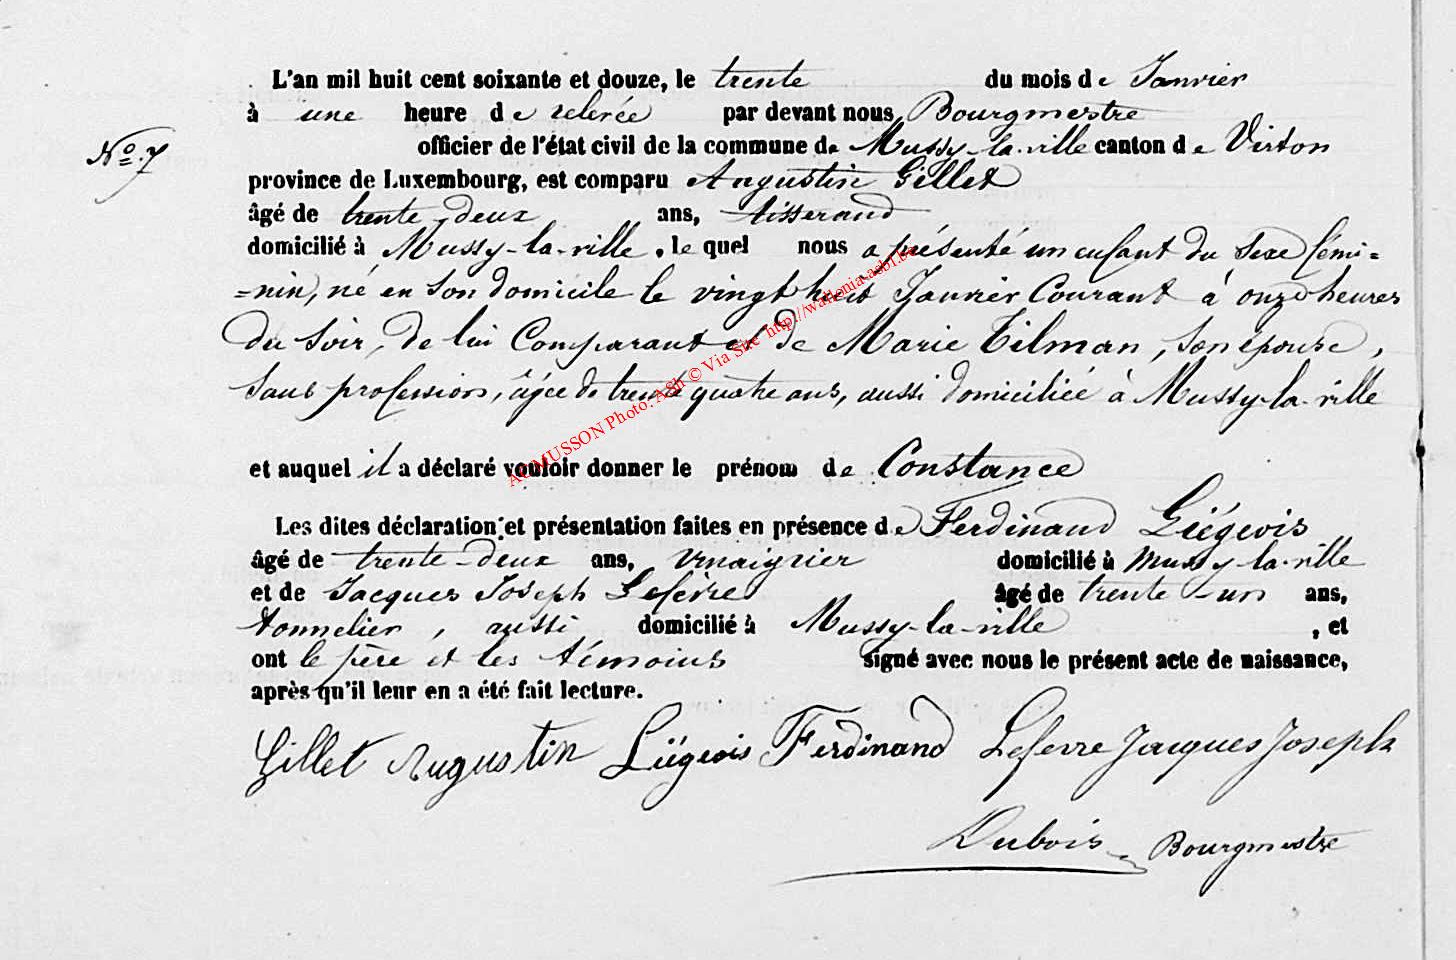 L'an mil huit cent soixante et douze, le trente du mois de Janvier
à une heure de relevée par devant nous Bourgmestre
No. 7
officier de l'état civil de la commune de Mussy-la-ville canton de Virton
province de Luxembourg, est comparu Augustin Gillet
âgé de trente-deux ans, tisserand
domicilié à Mussy-la-ville, le quel nous a présenté un enfant du sexe fémi=
=nin, né en son domicile le vingt huit Janvier Courant à onze heures
du soir, de lui Comparant et de Marie Tilman, son épouse,
sans profession, âgée de trente quatre ans, aussi domiciliée à Mussy-la-ville
et auquel il a déclaré vouloir donner le prénom de Constance
Les dites déclaration et présentation faites en présence de Ferdinand Liégeois
âgé de trente-deux ans, vinaigrier domicilié à Mussy-la-ville
et de Jacques Joseph Lefèvre âgé de trente-un ans,
tonnelier, aussi domicilié à Mussy-la-ville, et
ont le père et les témoins signé avec nous le présent acte de naissance,
après qu'il leur en a été fait lecture.
Gillet Augustin Liégeois Ferdinand Lefevre Jacques Joseph
Dubois Bourgmestre
ACMUSSON Photo: ASh © Via Site http://wallonia-asbl.be